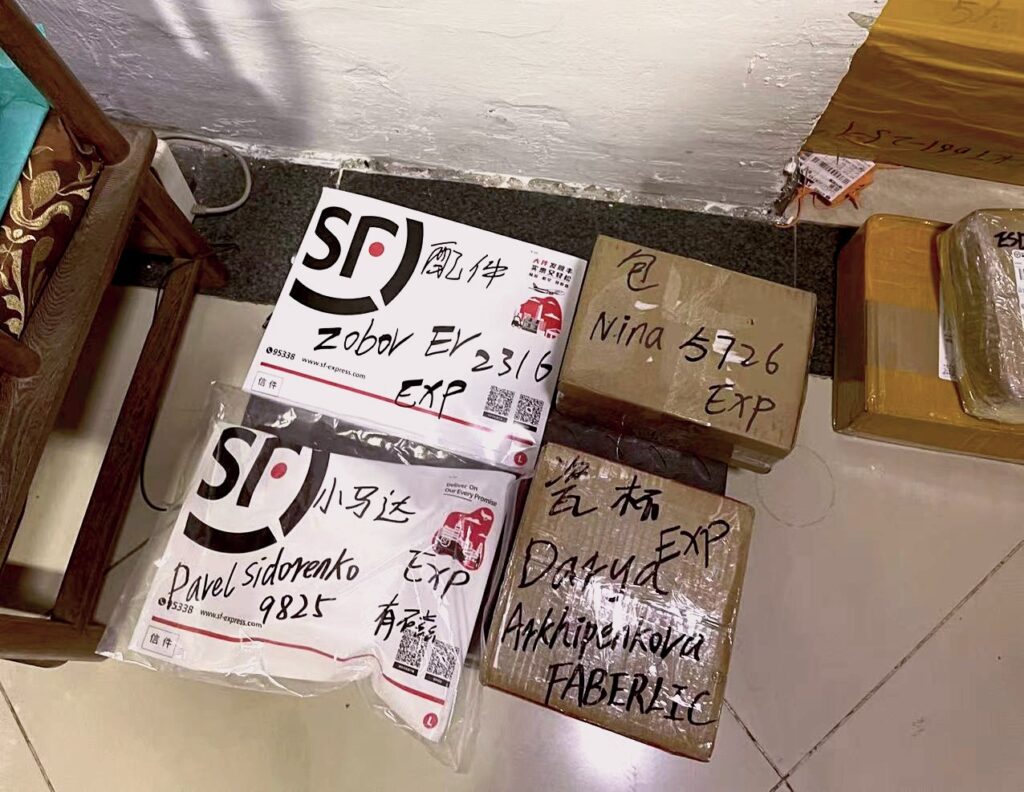 SF
配件
大件发顺丰
实惠又轻松
Zobov Ev 2316
95338 www.sf-express.com
EXP
信件
L
包
Nina 5726
EXP
SF
小马达
Deliver On
Our Every Promise
EXP
Pavel Sidorenko
9825
95338 www.sf-express.com
有磁
信件
L
瓷杯
EXP
Darya
Arkhipenkova
FABERLIC